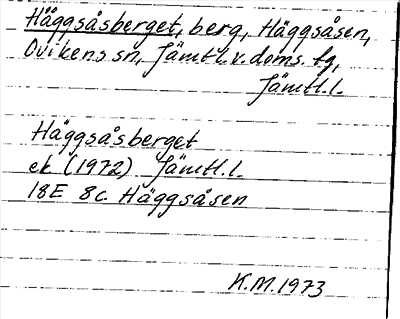 Häggsåsberget, berg, Häggsåsen,
Ovikens sn, Jämtl. v. doms. tg,
Jämtl. l.
Häggsåsberget
ek (1972) Jämtl. l.
18E 8c. Häggsåsen
K.M. 1973